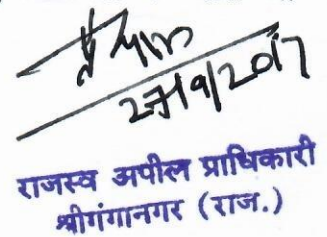 27/9/2017
राजस्व अपील प्राधिकारी
श्रीगंगानगर (राज.)